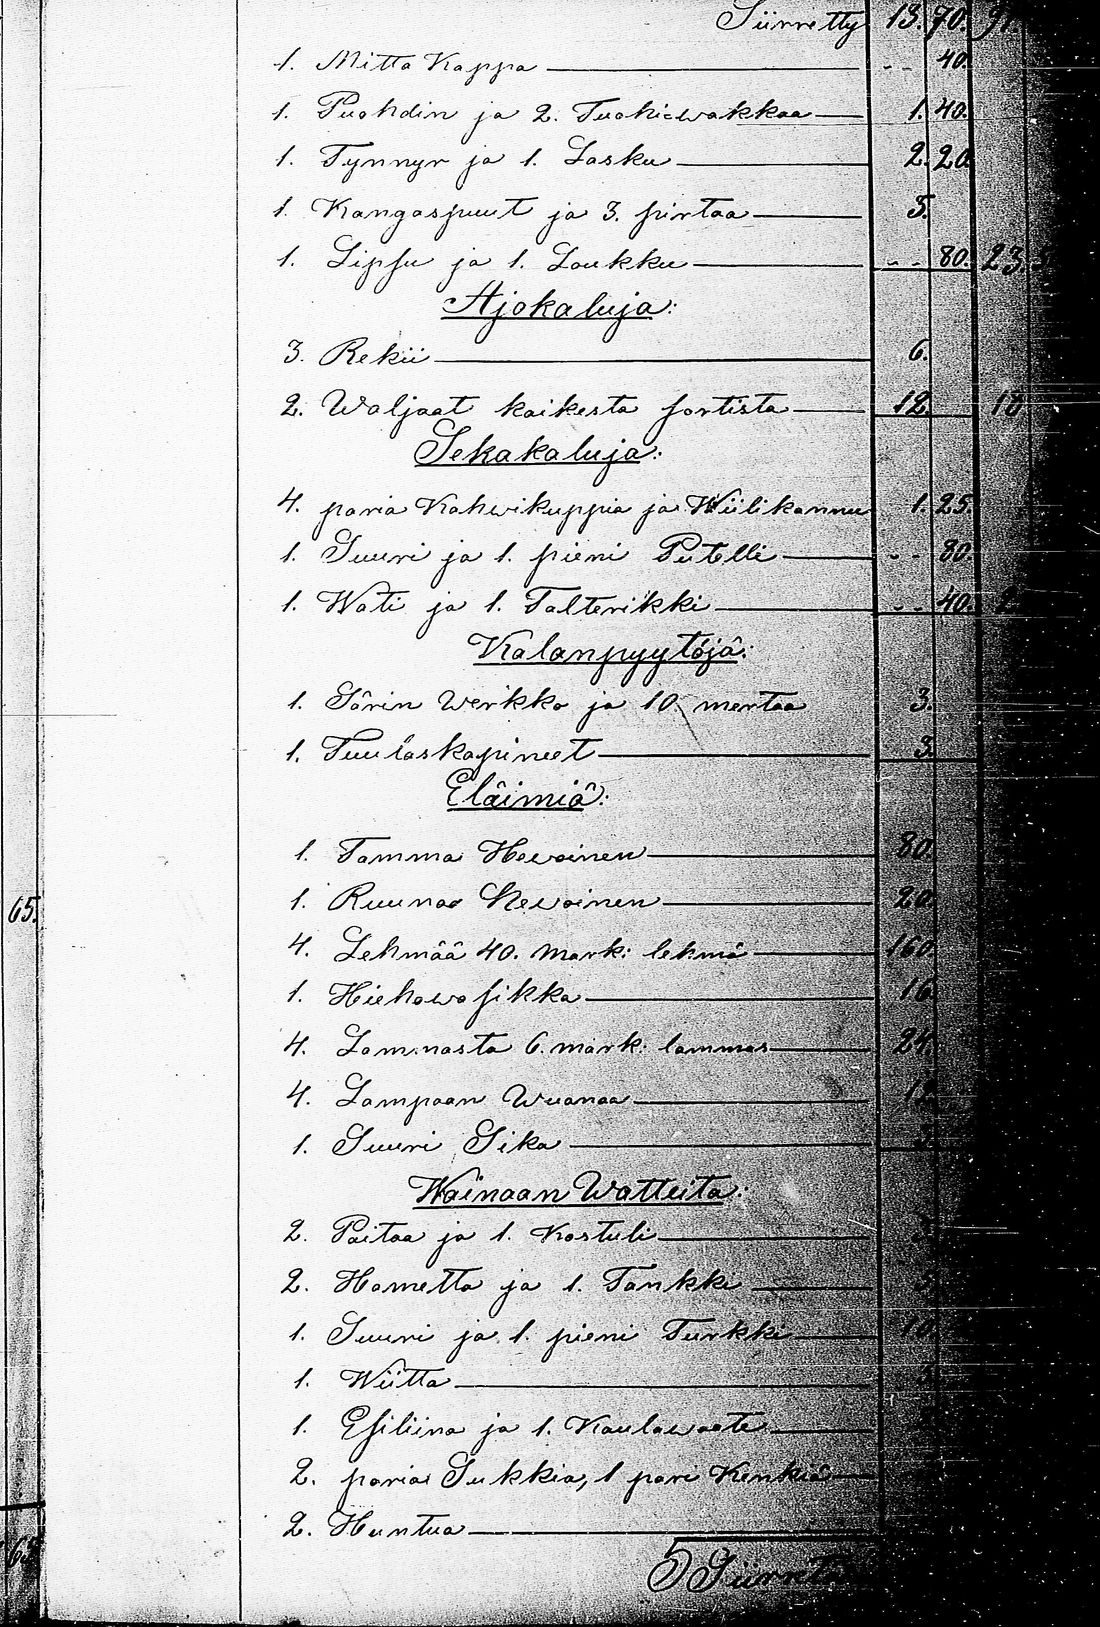 Siirretty 13. 70. 91.
1. Mitta Kappa - - 40.
1. Puohdin ja 2. Tuohiwakkaa 1. 40.
1. Tynnyr ja 1. Lasku 2. 20.
1. Kangaspuut ja 3. pirtaa 5.
1. Lipsu ja 1. Loukku - - 80. 23.
Ajokaluja:
3. Rekii 6.
2. Waljaat kaikesta sortista 12. 18
Sekakaluja:
4. paria Kahwikuppia ja Wiilikannu 1. 25.
1. Suuri ja 1. pieni Putelli - - 80.
1. Wati ja 1. Talterikki - - 40. 2
Kalanpyytöjä:
1. Särin Werkko ja 10. mertaa 3.
1. Tuulaskapineet 3.
Eläimiä:
1. Tamma Hewoinen 80.
1. Ruunaa Hewoinen 20.
65.
4. Lehmää 40. mark: lehmä 160.
1. Hiehowasikka 16.
4. Lammasta 6. mark: lammas 24.
4. Lampaan Wuanaa 12
1. Suuri Sika
Wainaan Watteita:
2. Paitaa ja 1. Kostuli
2. Hametta ja 1. Tankki
1. Suuri ja 1. pieni Turkki 10
1. Wiitta
1. Esiliina ja 1. Kaulawaate
2. paria Sukkia, 1 pari Kenkiä
2. Huntua
65
5 Siirretään